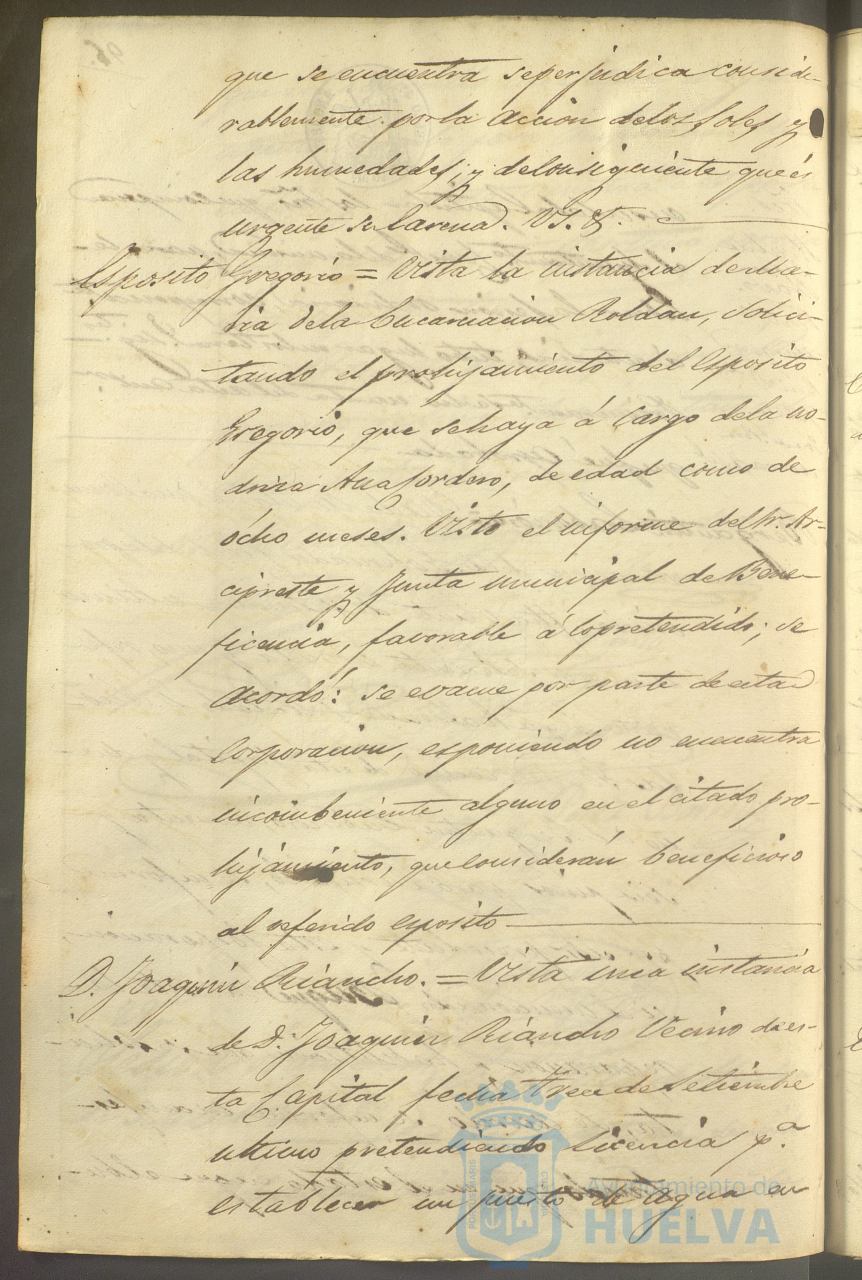 que se encuentra se perjudica conside-
rablemente por la accion de los soles y
las humedades; y de consiguiente que és
urgente su Carena. VS. &.
Esposito Gregorio = Vista la instancia de Ma-
ria de la Encarnacion Roldan, solici-
tando el prohijamiento del Esposito
Gregorio, que se haya á Cargo de la no-
driza Ana Cordero, de edad como de
ócho meses. Visto el informe del Sr. Ar-
cipreste y Junta municipal de Bene-
ficencia, favorable á lo pretendido; se
acordó: se evacue por parte de esta
Corporacion, esponiendo no encuentra
incombeniente alguno en el citado pro-
hijamiento, que considerán beneficioso
al referido esposito
D. Joaquin Riancho. = Vista una instancia
de D. Joaquin Riancho Vecino de es-
ta Capital fecha trece de Setiembre
ultimo pretendiendo licencia p.a
establecer un puesto de agua en
Ayuntamiento de
HUELVA